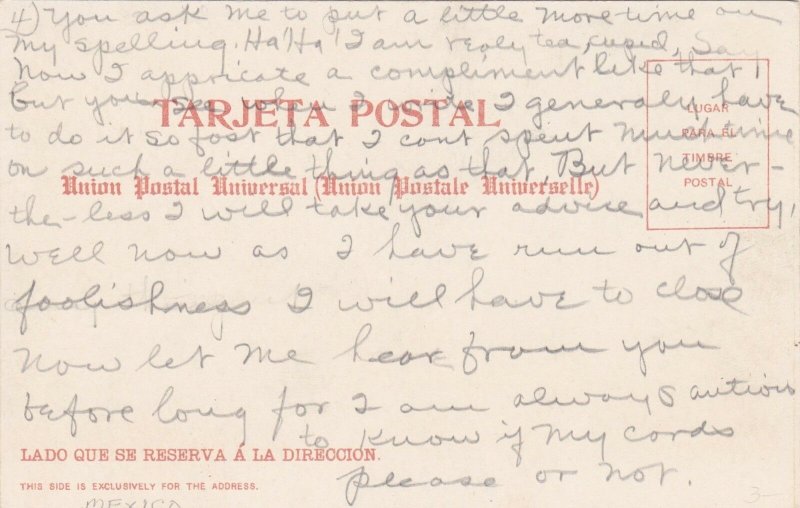 4) You ask me to put a little more time on
my spelling. Ha! Ha! I am realy
Now I appricate a compliment like that,
but you see when I write I generaly have
TARJETA POSTAL
LUGAR
PARA EL
TIMBRE
POSTAL
to do it so fast that I cont spent much time
on such a little thing as that, But never-
Union Postal Universal (Union Postale Universelle)
the-less I will take your advise and try,
Well now as I have run out of
foolishness I will have to close
Now let me hear from you
before long for I am always autious
to know if my cards
LADO QUE SE RESERVA Á LA DIRECCION.
please or not.
THIS SIDE IS EXCLUSIVELY FOR THE ADDRESS.
MEXICO
3-